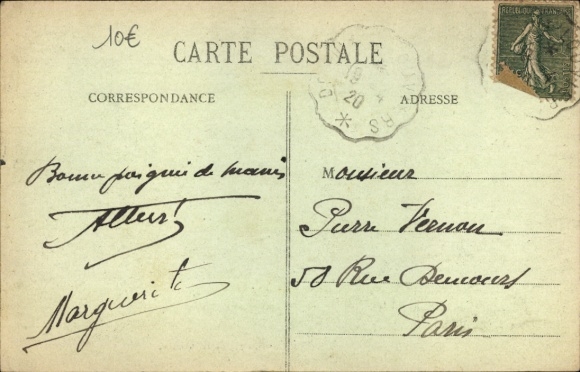 10€
CARTE POSTALE
REPUBLIQUE FRANÇAISE
CORRESPONDANCE
ADRESSE
19
20
Bonne poignée de mains
Albert
Marguerite
Monsieur
Pierre Vernon
58 Rue Demours
Paris